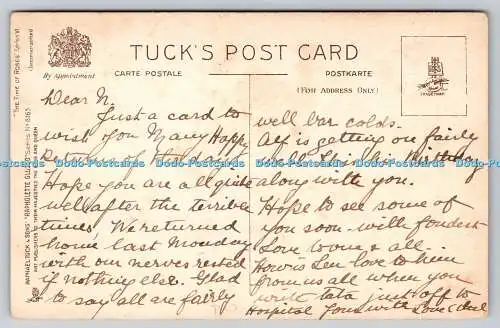 "THE TIME OF ROSES" Series VI
(Uncopyrighted)
By Appointment
TUCK'S POST CARD
CARTE POSTALE
POSTKARTE
(FOR ADDRESS ONLY)
TRADE MARK
RAPHAEL TUCK & SONS'
ART PUBLISHERS TO THEIR MAJESTIES THE KING AND QUEEN
Dear N.
Just a card to
wish you Many Happy
Returns of
Hope you are all quite
well after the terrible
times. We returned
home last Monday
with our nerves rested
if nothing else. Glad
to say all are fairly
well bar colds.
Alf is getting on fairly
well
along with you.
Hope to see some of
you soon. with fondest
Love to one & all.
How is Len love to him
from us all when you
write tata just off to
Hospital Yours with Love
Dodo-Postcards Dodo-Postcards Dodo-Postcards Dodo-Postcards Dodo-Postcards